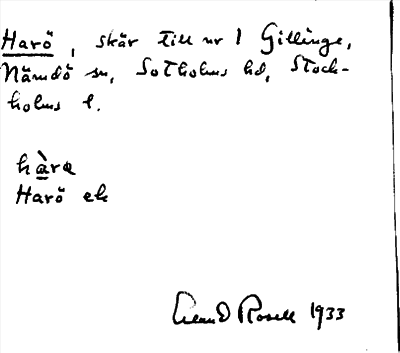 Harö, skär till nr 1 Gillinge,
Nämdö sn, Sotholms hd, Stock-
holms l.
hàra
Harö ek
Rosell 1933